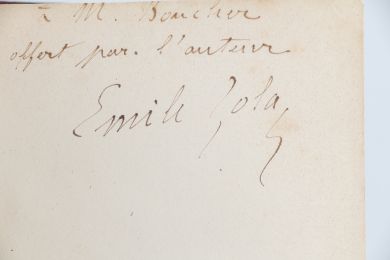 à M. Boucher
offert par l'auteur
Emile Zola